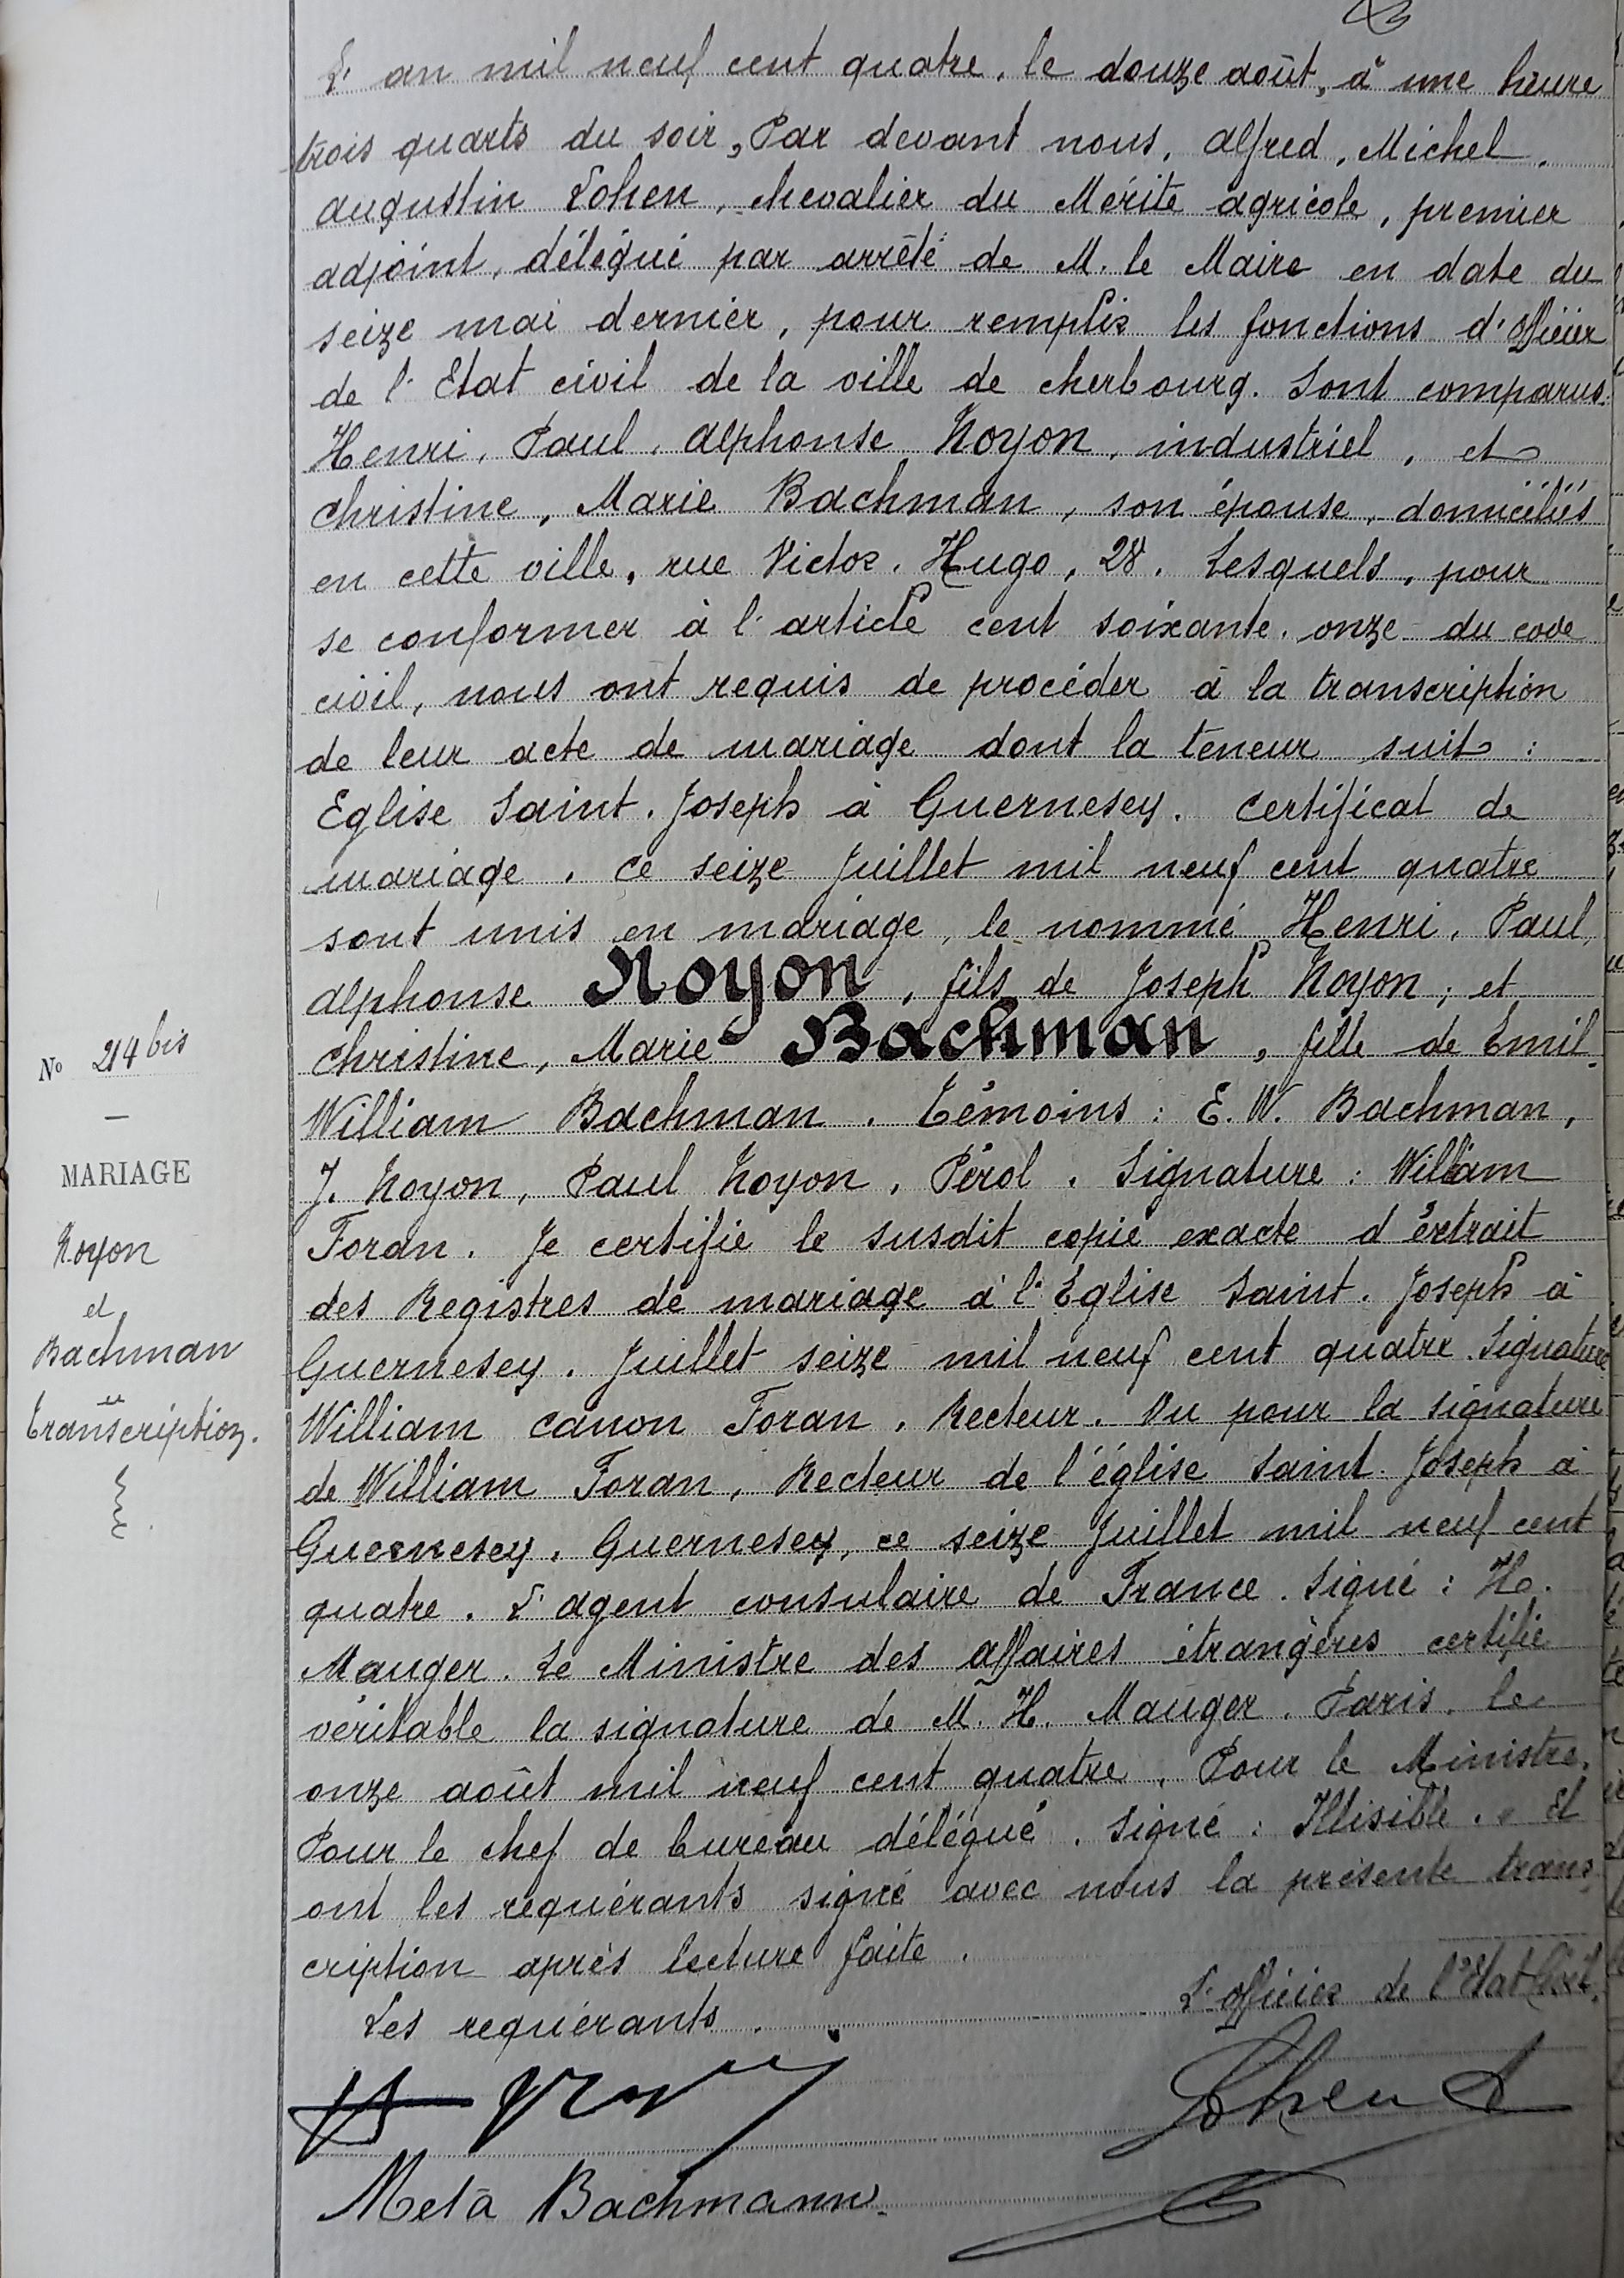 L'an mil neuf cent quatre, le douze août, à une heure
trois quarts du soir, Par devant nous, Alfred, Michel,
Augustin Lohen, chevalier du Mérite agricole, premier
adjoint, délégué par arrêté de M. le Maire en date du
seize mai dernier, pour remplir les fonctions d'Officier
de l'Etat civil de la ville de Cherbourg. Sont comparus:
Henri, Paul, Alphonse Noyon, industriel, et
Christine, Marie Bachman, son épouse, domiciliés
en cette ville, rue Victor. Hugo, 28. Lesquels, pour
se conformer à l'article cent soixante. onze du code
civil, nous ont requis de procéder à la transcription
de leur acte de mariage dont la teneur suit :
Eglise Saint. Joseph à Guernesey. Certificat de
mariage. Ce seize Juillet mil neuf cent quatre
sont unis en mariage, le nommé Henri, Paul,
Alphonse Noyon, fils de Joseph Noyon; et
Christine, Marie Bachman, fille de Emil.
William Bachman. Témoins : E. W. Bachman,
J. Noyon, Paul Noyon, Pérol. Signature : William
Foran. Je certifie le susdit copie exacte d'extrait
des Registres de mariage à l'Eglise Saint. Joseph à
Guernesey. Juillet seize mil neuf cent quatre. Signature
William canon Foran, Recteur. Vu pour la signature
de William Foran, Recteur de l'église Saint. Joseph à
Guernesey. Guernesey, ce seize Juillet mil neuf cent
quatre. L'agent consulaire de France. Signé : H.
Mauger. Le Ministre des Affaires étrangères certifie
véritable la signature de M. H. Mauger. Paris. le
onze août mil neuf cent quatre. Pour le Ministre.
Pour le chef de bureau délégué. Signé : Illisible. Et
ont les requérants signé avec nous la présente trans
cription après lecture faite.
Les requérants.
L'officier de l'Etat Civil.
Lohen A
Meta Bachmann.
N° 214 bis
MARIAGE
Noyon
et
Bachman
Transcription.